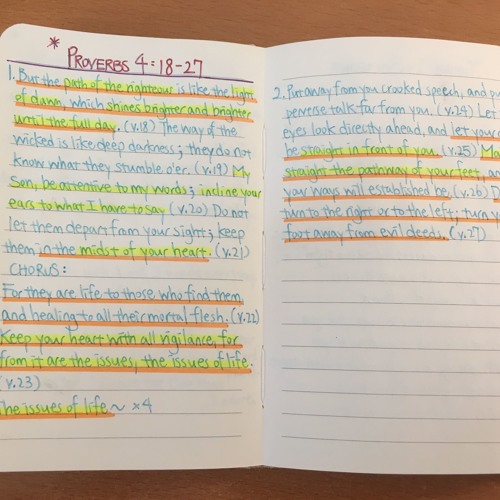 * PROVERBS 4:18-27
1. But the path of the righteous is like the light
of dawn, which shines brighter and brighter
until the full day. (v.18) The way of the
wicked is like deep darkness; they do not
know what they stumble o'er. (v.19) My
son, be attentive to my words; incline your
ears to what I have to say (v.20) Do not
let them depart from your sight; keep
them in the midst of your heart. (v.21)
CHORUS:
For they are life to those who find them
and healing to all their mortal flesh. (v.22)
Keep your heart with all vigilance, for
from it are the issues, the issues of life.
(v.23)
The issues of life ~ x4
2. Put away from you crooked speech, and pu
perverse talk far from you. (v.24) Let
eyes look directly ahead, and let your
be straight in front of you. (v.25) Ma
straight the pathway of your feet, an
your ways will established be. (v.26) D
turn to the right or to the left; turn y
foot away from evil deeds. (v.27)